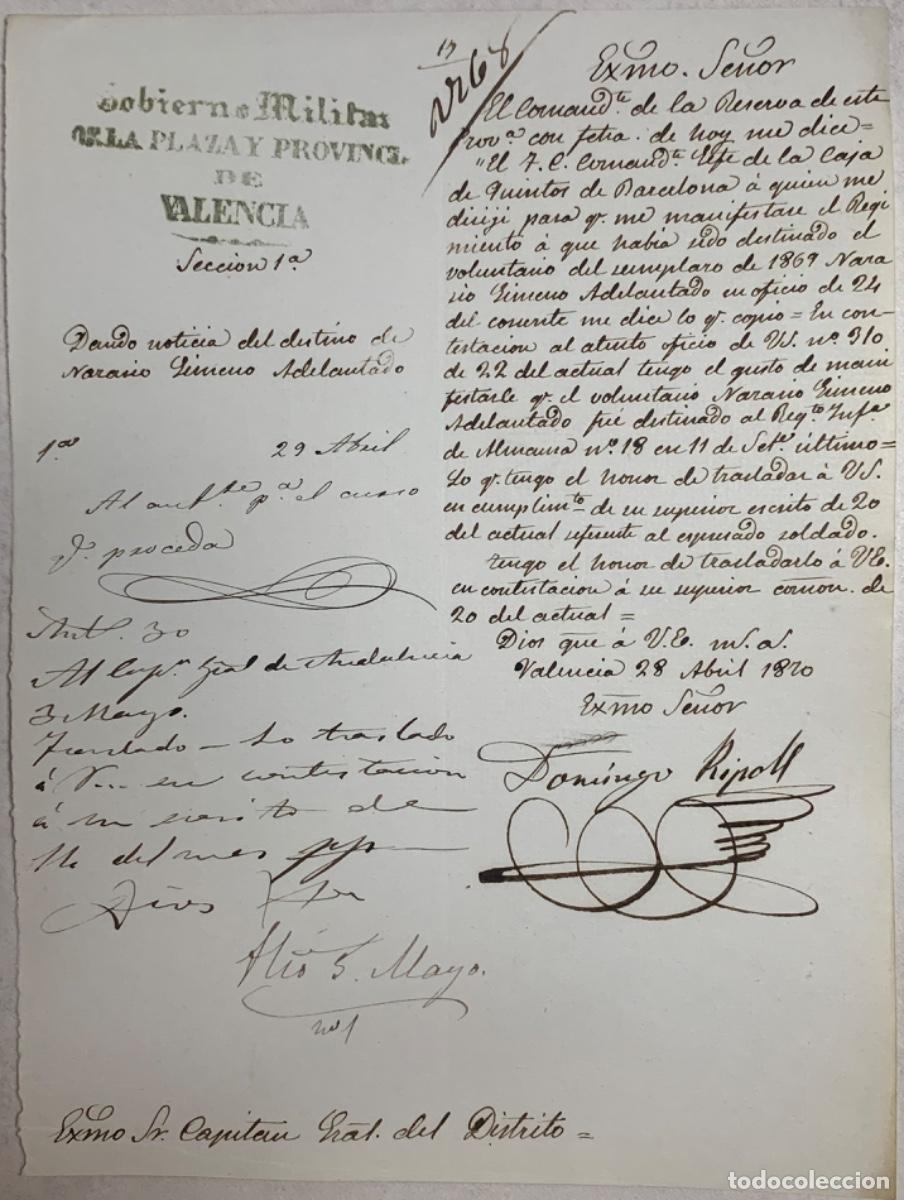 Gobierno Militar
DE LA PLAZA Y PROVINCI.
DE
VALENCIA
Seccion 1ª
Dando noticia del destino de
Narario Gimeno Adelantado
1ª 29 Abril
Al pª el curso
q.e proceda
Ant. 30
Al Capn. Gral de Andalucia
3 Mayo.
Trasladado - Lo traslado
á V... en contestacion
á su escrito de
del mes
Dios
5. Mayo.
Exmo. Señor
El Comandte. de la Reserva de esta
Provª con fecha. de hoy me dice=
"El T. C. Comandte. Gefe de la Caja
de Quintos de Barcelona á quien me
dirijí para q. me manifestase el Regi
miento á que habia sido destinado el
voluntario del reemplazo de 1869 Nara
rio Gimeno Adelantado en oficio de 24
del corriente me dice lo q. copio = En con-
testacion al atento oficio de V.S. nº. 310
de 22 del actual tengo el gusto de mani
festarle q. el voluntario Narario Gimeno
Adelantado fué destinado al Regto. Infª
de Almansa nº. 18 en 11 de Sete. último=
Lo q. tengo el honor de trasladar á V.S.
en cumplimto. de su superior escrito de 20
del actual referente al espresado soldado.
Tengo el honor de trasladarlo á V.E.
en contestacion á su superior comon. de
20 del actual=
Dios gue á V.E. m.s a.s
Valencia 28 Abril 1870
Exmo Señor
Domingo Ripoll
Exmo Sr. Capitan Gral. del Distrito =
todocoleccion